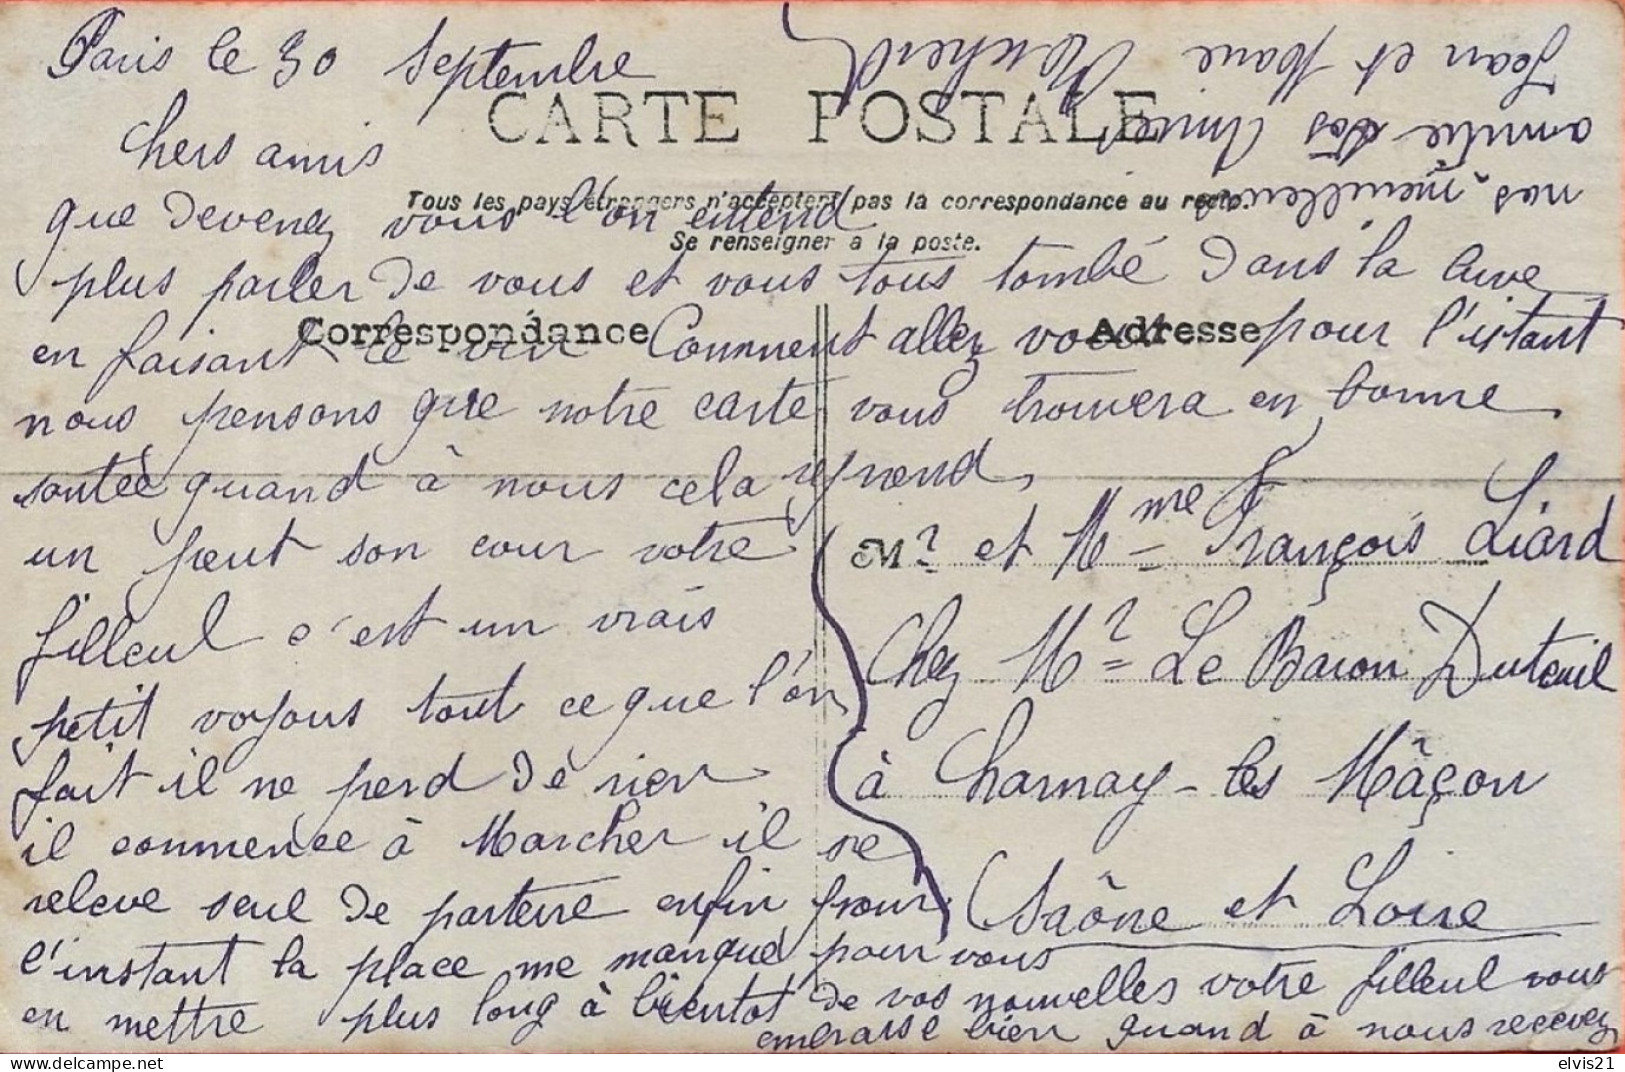 Paris le 30 Septembre
CARTE POSTALE
Chers amis
Tous les pays étrangers n'acceptent pas la correspondance au recto.
Se renseigner a la poste.
que devenez vous l'on entend
plus parler de vous et vous tous tombé dans la cuve
en faisant le vin Comment allez vous pour l'istant
Correspondance
Adresse
nous pensons que notre carte vous trouvera en bonne
santée quand à nous cela reprend
un peut son cour votre
filleul c'est un vrais
petit voyous tout ce que l'on
fait il ne perd de rien
il commence à Marcher il se
releve seul de parterre enfin pour
l'instant la place me manque pour vous
en mettre plus long à bientot de vos nouvelles votre filleul vous
embrasse bien quand à nous recevez
nos meilleures
amitié Vos Amis
Jean et Jeane
Mr et Mme François Liard
Chez Mr Le Baron Duteuil
à Charnay-les Mâçon
Saône et Loire
elvis21